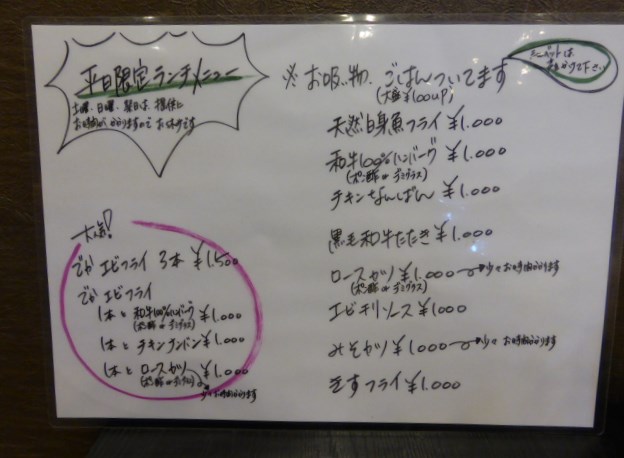 平日限定ランチメニュー
土曜、日曜、祝日は、提供に
お時間がかかりますので お休みです
※ お吸い物、ごはんついてます
(大盛¥100UP)
天然白身魚フライ ¥1.000
和牛100%ハンバーグ ¥1.000
(ポン酢 or デミグラス)
チキンなんばん ¥1.000
黒毛和牛たたき ¥1.000
ロースカツ ¥1.000 少々お時間かかります
(ポン酢 or デミグラス)
エビチリソース ¥1000
みそカツ ¥1000 少々 お時間かかります
きすフライ ¥1.000
大人気!
でか エビフライ 3本 ¥1.500
でか エビフライ
1本と 和牛100%ハンバーグ ¥1.000
(ポン酢 or デミグラス)
1本と チキンナンバン ¥1.000
1本と ロースカツ ¥1.000
(ポン酢 or デミグラス)
少々お時間かかります